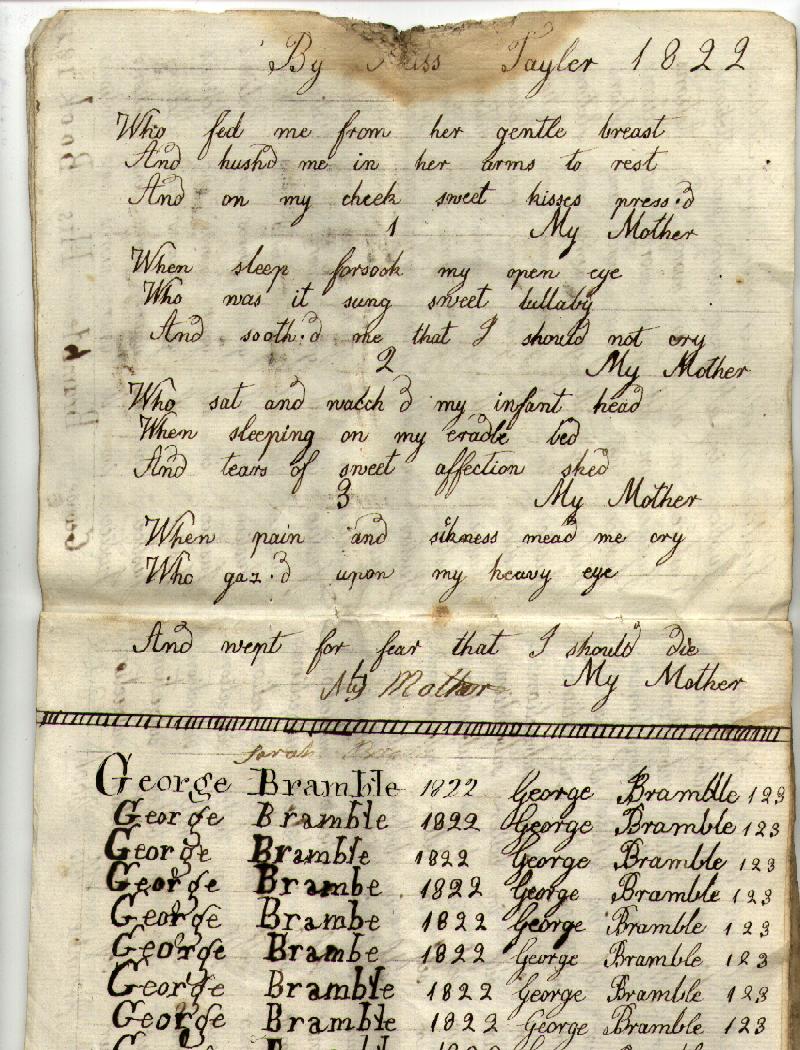 By Miss Tayler 1822
Who fed me from her gentle breast
And hush'd me in her arms to rest
And on my cheek sweet kisses press'd
1 My Mother
When sleep forsook my open eye
Who was it sung sweet lullaby
And sooth'd me that I should not cry
2 My Mother
Who sat and watch'd my infant head
When sleeping on my cradle bed
And tears of sweet affection shed
3 My Mother
When pain and sikness mead me cry
Who gaz'd upon my heavy eye
And wept for fear that I should die
My Mother My Mother
Sarah
George Bramble 1822 George Bramble 123
George Bramble 1822 George Bramble 123
George Bramble 1822 George Bramble 123
George Brambe 1822 George Bramble 123
George Brambe 1822 George Bramble 123
George Brambe 1822 George Bramble 123
George Bramble 1822 George Bramble 123
George Bramble 1822 George Bramble 123